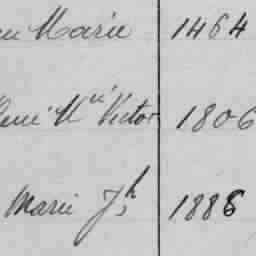 Marie 1464
René Mie Victor 1806
Marie Jh 1886